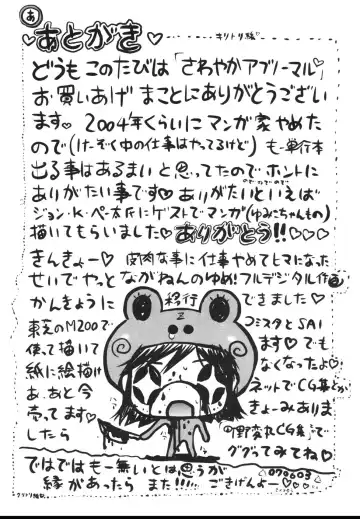 あ
あとがき
キリトリ線
どうも このたびは「さわやかアブノーマル」
お買いあげ まことにありがとうござい
ます♡ 2004年くらいにマンガ家やめた
ので(けーぞく中の仕事はやってるけど) もー単行本
出る事はあるまいと思ってたので ホントに
ありがたい事です♡ ありがたいといえば
ジョン・K・ペー太氏にゲストでマンガ(ゆみこちゃんもの)
描いてもらいました♡ ありがとう!!♡♡♡
きんきょー♡ 皮肉な事に仕事やめてヒマになった
せいでやっと ながねんのゆめ!フルデジタル作画
かんきょうに 移行 できました♡
東芝のM200で コミスタとSAI
使って描いて ます♡ でも
紙に絵描け なくなったよ♡
あ、あと今 ネットでCG集とか
売ってます♡ きょーみありま
したら 「野変丸CG集」で
ググってみてね♡
ではでは もー無いとは思うが 070603
縁があったら また!!!! ごきげんよー♡♡♡
キリトリ線